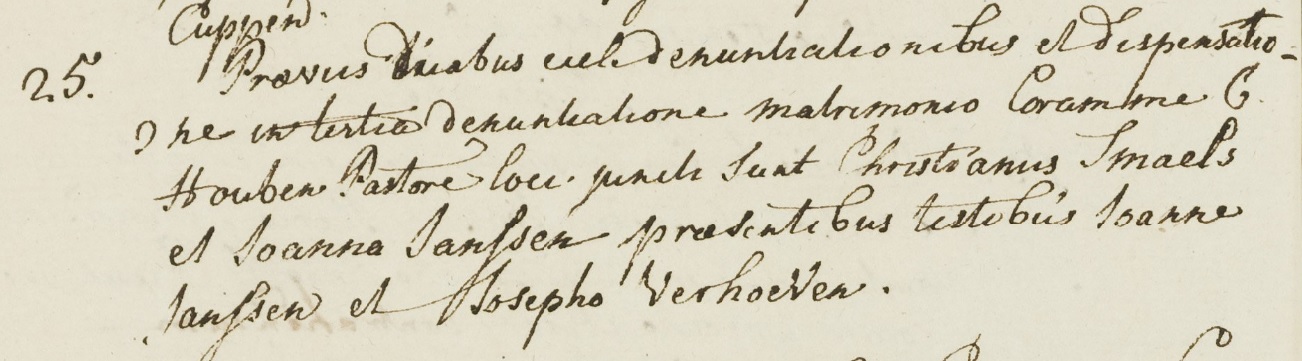 Cuppen.
25. Prævus duabus eccle denuntiationibus et dispensatio-
ne in tertia denuntiatione matrimonio Coram me G
Houben Pastore loci juncti sunt Christianus Smaels
et Joanna Janssen præsentibus testibus Joanne
Janssen et Josepho Verhoeven.